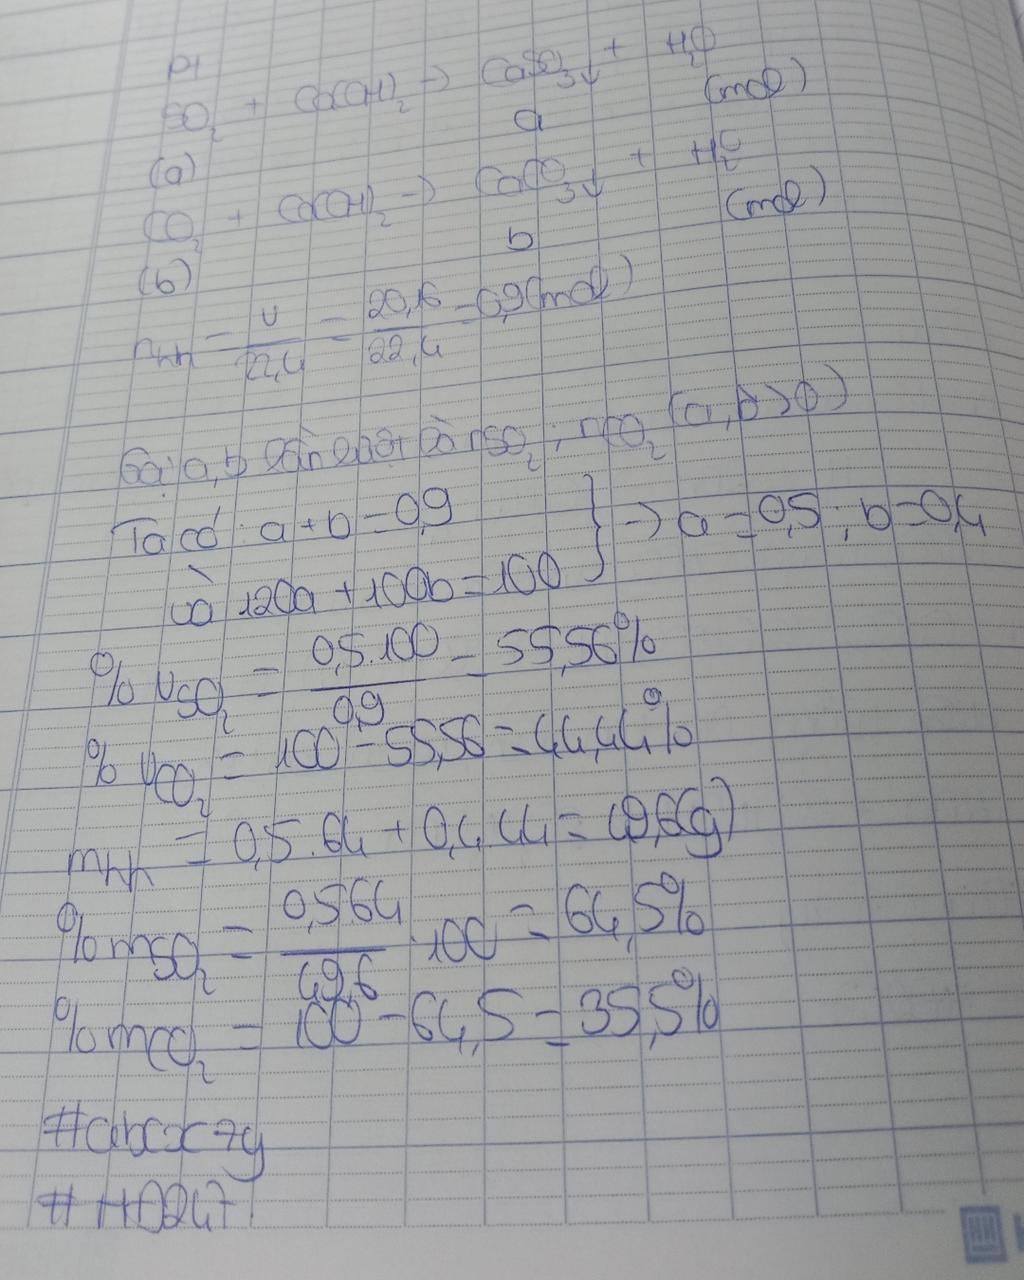 Pt
SO₂ + Ca(OH)₂ → CaSO₃↓ + H₂O
(a) a (mol)
CO₂ + Ca(OH)₂ → CaCO₃↓ + H₂O
(b) b (mol)
nhh = V/22,4 = 20,16/22,4 = 0,9(mol)
Gọi a, b lần lượt là nSO₂; nCO₂ (a,b>0)
Ta có: a+b=0,9 } → a=0,5; b=0,4
và 120a+100b=100
%VSO₂ = 0,5.100/0,9 = 55,56%
%VCO₂ = 100-55,56=44,44%
mhh = 0,5.64+0,4.44=49,6(g)
%mSO₂ = 0,5.64/49,6 .100 = 64,5%
%mCO₂ = 100-64,5=35,5%